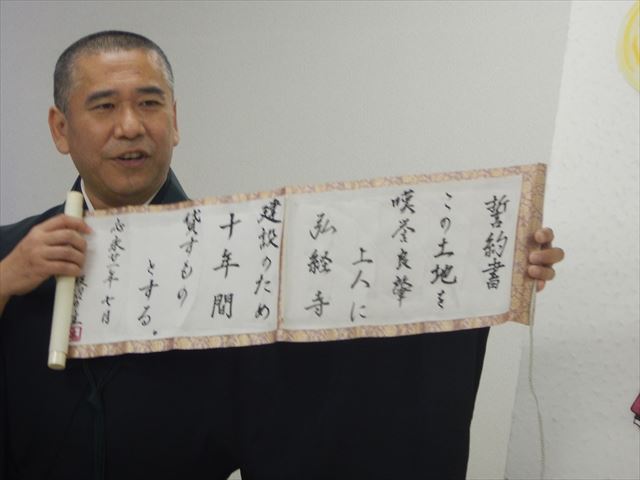 誓約書
この土地を
嘆誉良肇
上人に
弘経寺
建設のため
十年間
貸すもの
とする。
応永廿一年 七月